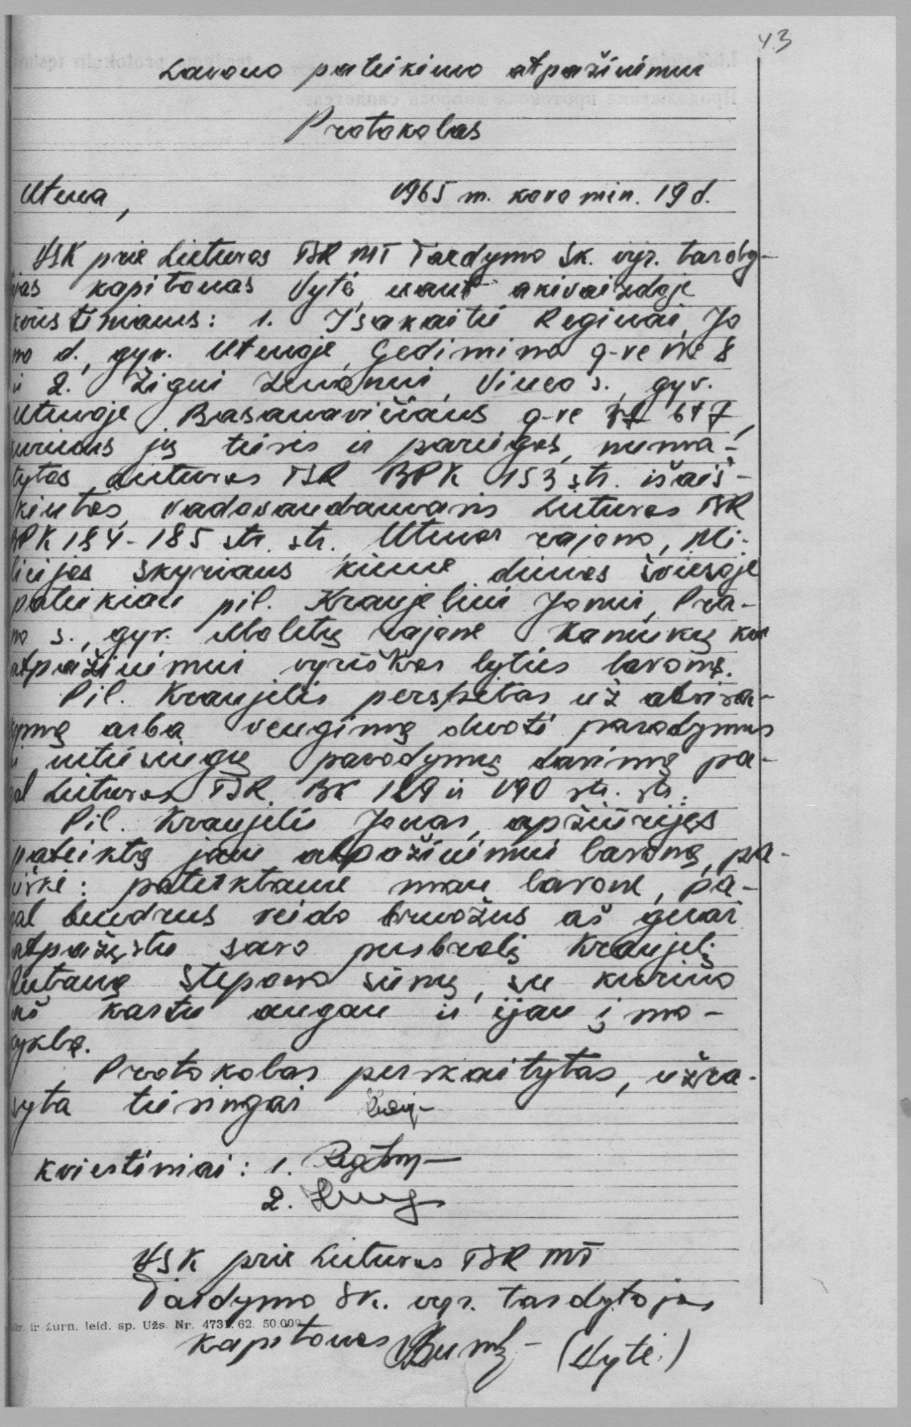 43
Lavono pateikimo atpažinimui
Protokolas
Utena, 1965 m. kovo mėn. 19 d.
VSK prie Lietuvos TSR MT Tardymo sk. vyr. tardy-
jas kapitonas Vytė, akivaizdoje
kviestiniams: 1. Isakaitei Reginai, Jo
no d., gyv. Utenoje, Gedimino g-vė Nr 8
ir 2. Žigui Zenonui, Vinco s., gyv.
Utenoje Basanavičiaus g-vė b 7,
kuriems jų teisės ir pareigos, numa-
tytos Lietuvos TSR BPK 153 str. išaiš-
kintos, vadovaudamasis Lietuvos TSR
BPK 184-185 str. str., Utenos rajono, Mi-
licijos skyriaus kieme dienos šviesoje
pateikiau pil. Kraujeliui Jonui, Pra-
no s., gyv. Molėtų rajone Kaniūkų km
atpažinimui vyriškos lyties lavoną.
Pil. Kraujelis perspėtas už atsisa-
kymą arba vengimą duoti parodymus
ir neteisingų parodymų davimą pa-
gal Lietuvos TSR BK 189 ir 190 str. str.
Pil. Kraujelis Jonas, apžiūrėjęs
pateiktą jam atpažinimui lavoną, pa-
reiškė: pateiktame man lavone, pa-
gal bendrus veido bruožus aš gerai
atpažįstu savo pusbrolį Kraujelį
Antaną Stepono sūnų, su kuriuo
aš kartu augau ir ėjau į mo-
kyklą.
Protokolas perskaitytas, užra-
šyta teisingai
Kviestiniai: 1.
2.
VSK prie Lietuvos TSR MT
Tardymo sk. vyr. tardytojas
kapitonas (Vytė)
ir žurn. leid. sp. Užs. Nr. 4731. 62. 50.000